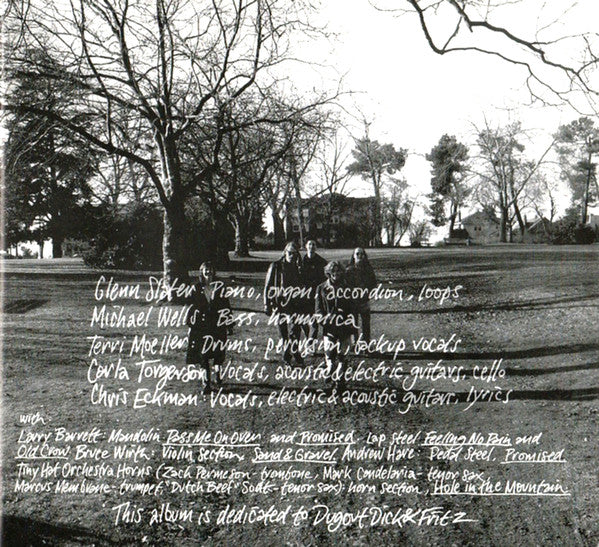 Glenn Slater: Piano, organ, accordion, loops
Michael Wells: Bass, harmonica
Terri Moeller: Drums, percussion, backup vocals
Carla Torgerson: Vocals, acoustic & electric guitars, cello
Chris Eckman: Vocals, electric & acoustic guitars, lyrics
with
Larry Barrett: Mandolin Pass Me On Over and Promised. Lap steel Feeling No Pain and
Old Crow. Bruce Wirth: Violin Section, Sand & Gravel. Andrew Hare: Pedal Steel, Promised
Tiny Hat Orchestra Horns (Zach Permeson-trombone, Mark Candelaria-tenor sax,
Marcus Membrane-trumpet, "Dutch Beef" -tenor sax): horn section, Hole in the Mountain.
This album is dedicated to Dugout Dick & Fritz